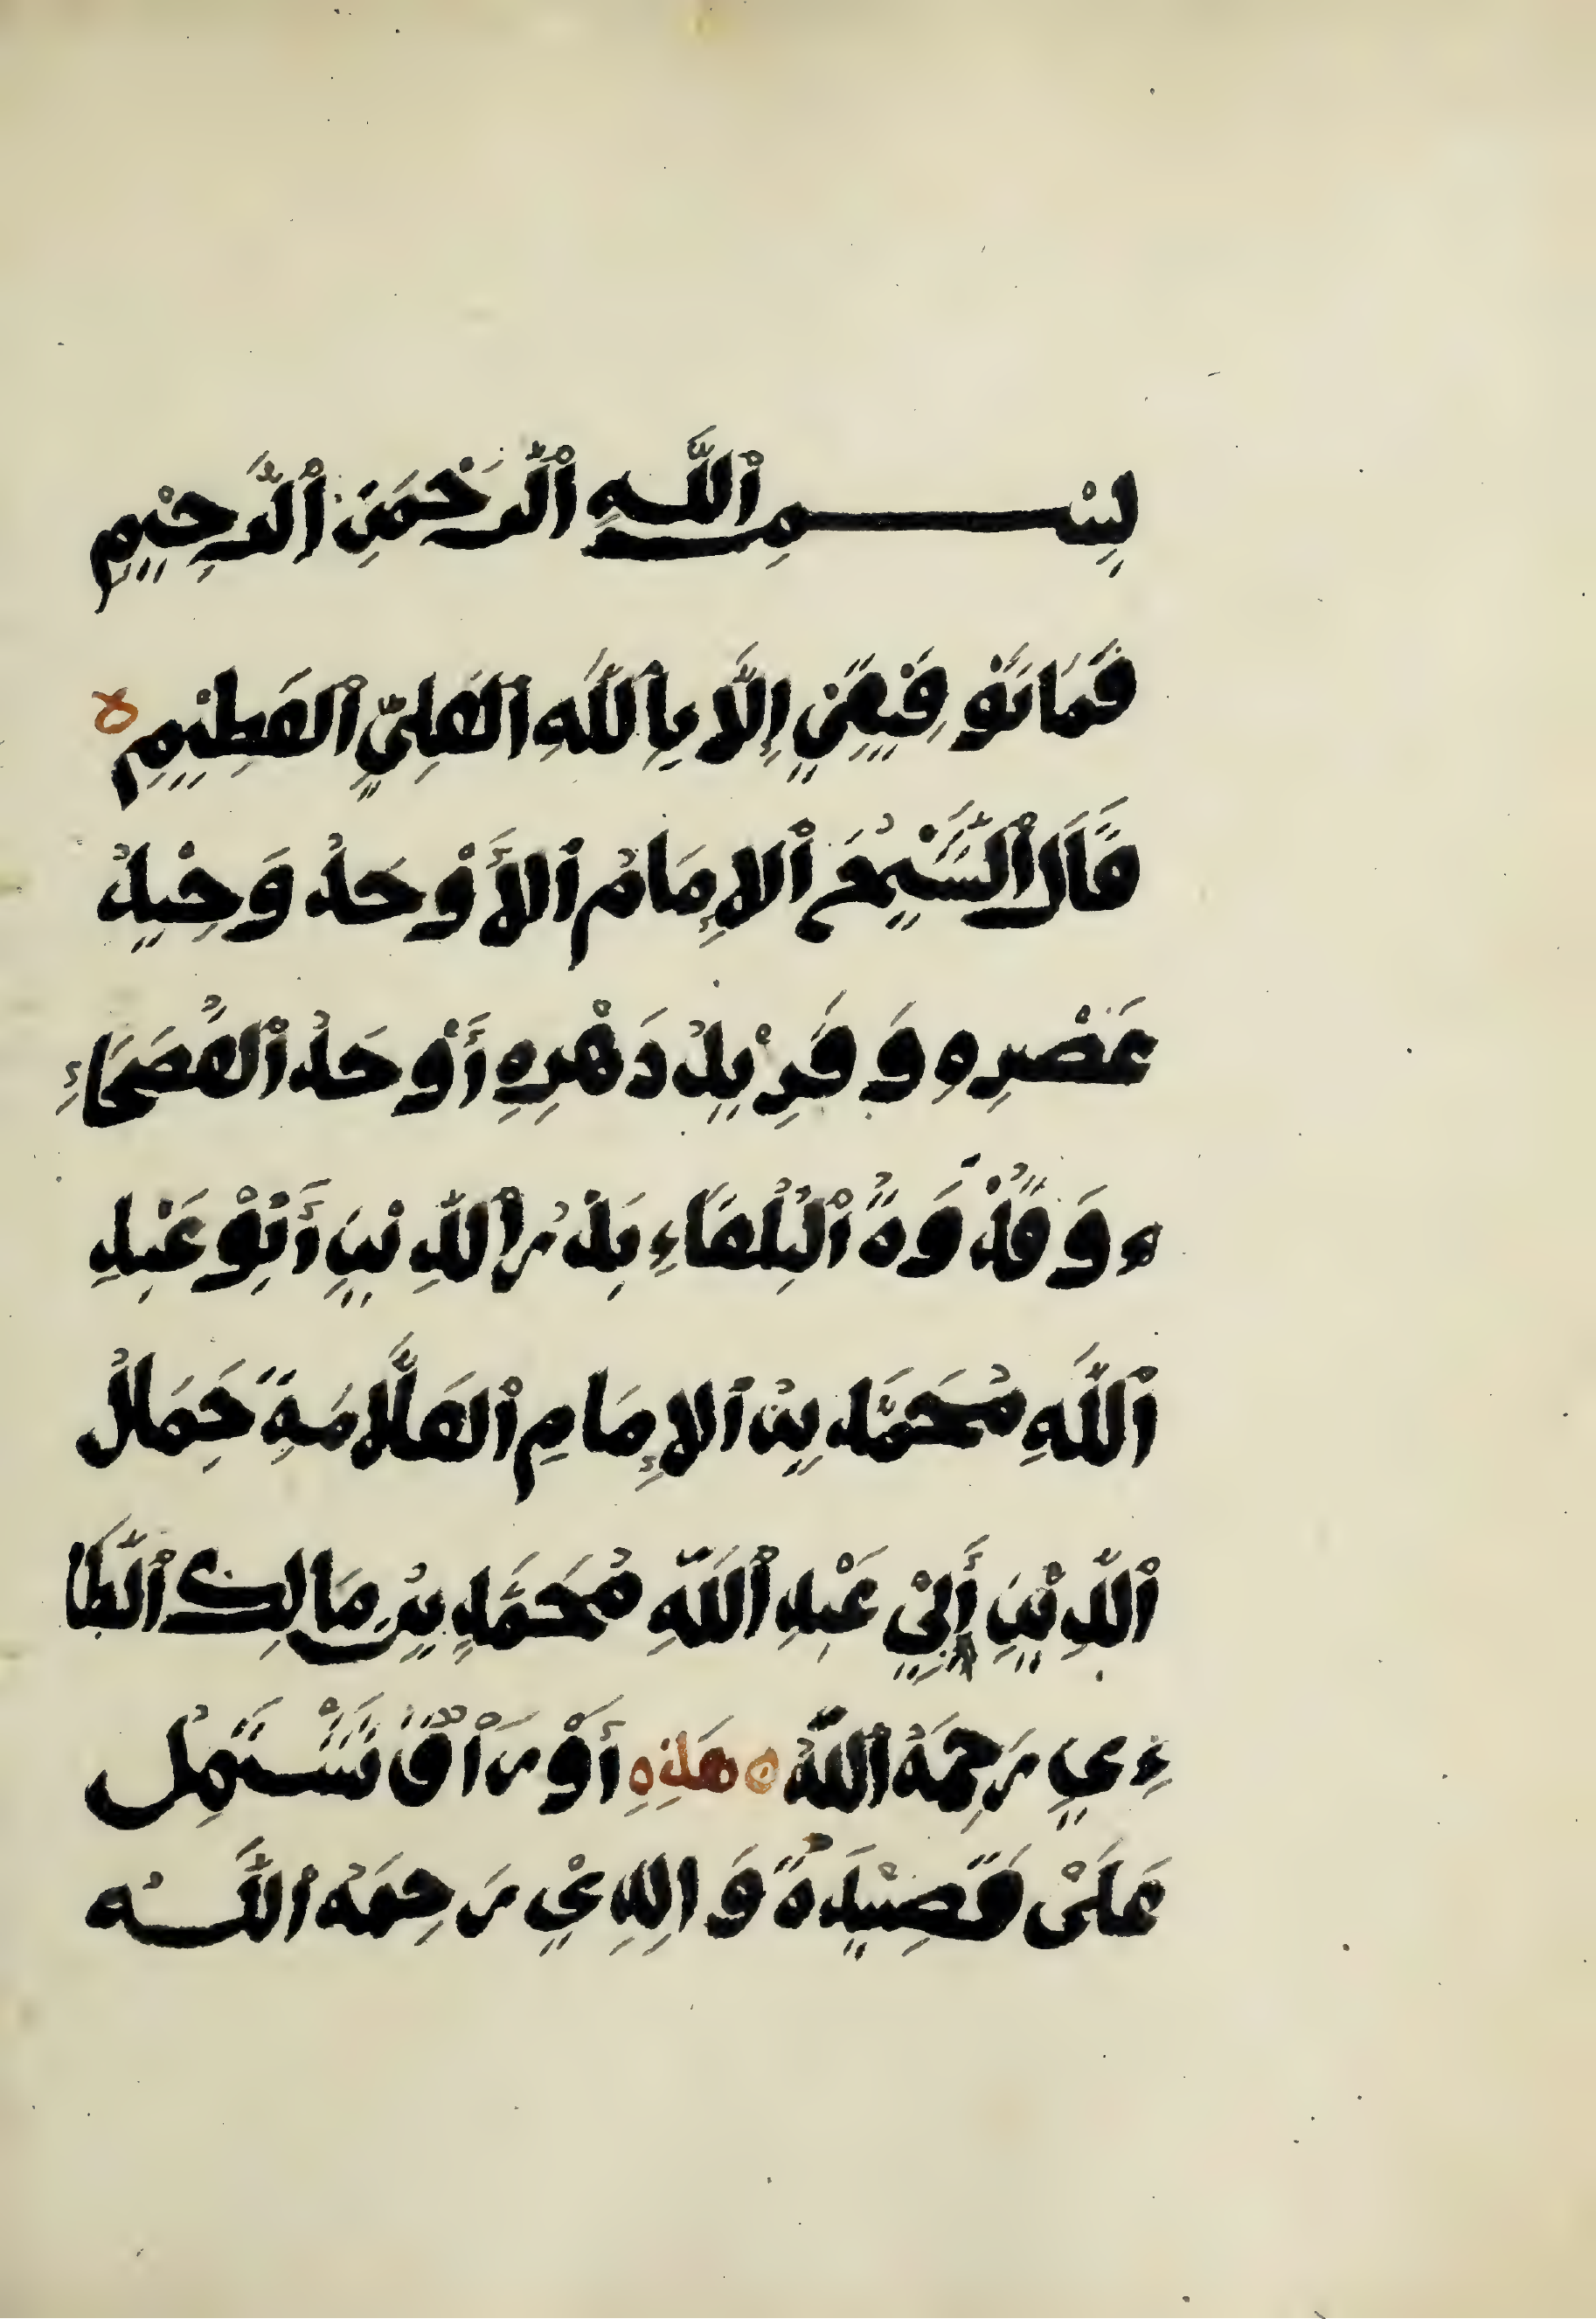 بِسْمِ ٱللَّهِ ٱلرَّحْمَنِ ٱلرَّحِيْمِ
وَمَا تَوْفِيْقِيْ إِلَّا بِٱللَّهِ ٱلْعَلِيِّ ٱلْعَظِيْمِ ه
قَالَ ٱلشَّيْخُ ٱلْاِمَامُ ٱلْأَوْحَدُ وَحِيْدُ
عَصْرِهِ وَ فَرِيْدُ دَهْرِهِ أَوْحَدُ ٱلْفُصَحَاءِ
ء وَ قُدْوَةُ ٱلْبُلَغَاءِ بَدْرُ ٱلدِّيْنِ أَبُوْ عَبْدِ
ٱللَّهِ مُحَمَّد بْنُ ٱلْاِمَامِ ٱلْعَلَّامَةِ جَمَالُ
ٱلدِّيْنِ أَبِيْ عَبْدِ ٱللَّهِ مُحَمَّدِ بْنِ مَالِك ٱلطَّا
ءِيِ رَحِمَهُ ٱللَّهُ ه هَذِهِ أَوْرَاقٌ تَشْتَمِلُ
عَلَىْ قَصِيْدَةِ وَالِدِيْ رَحِمَهُ ٱللَّهُ